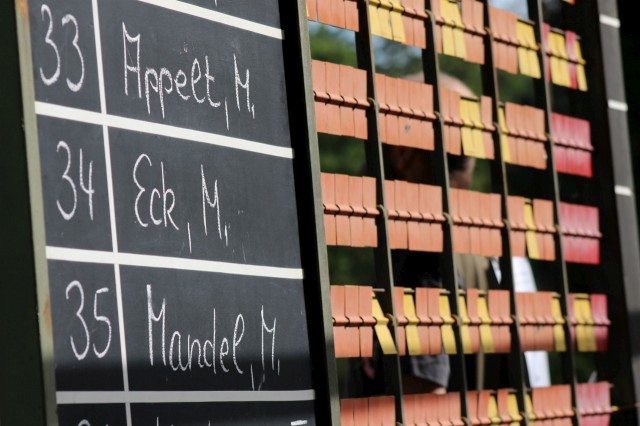 33 Appèlt, M.
34 Eck, M.
35 Mandel, M.